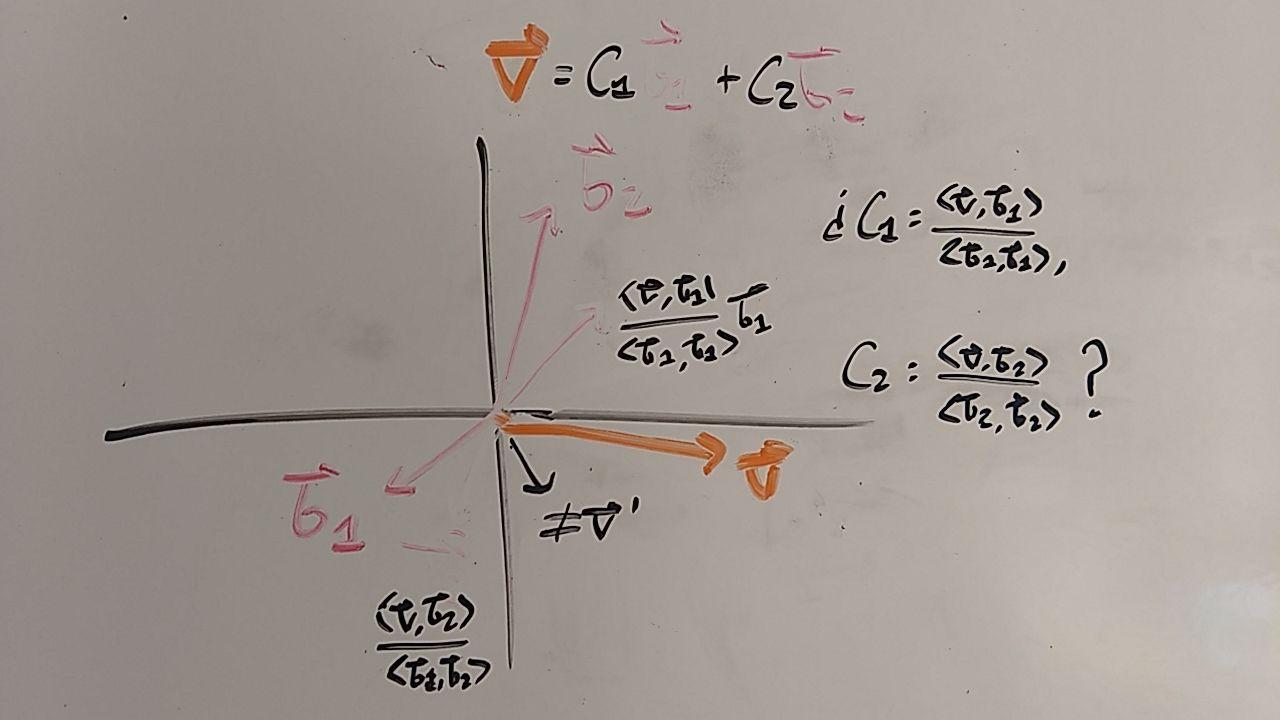 v⃗ = C₁ b⃗₁ + C₂ b⃗₂
b⃗₂
¿ C₁ = <v⃗, b⃗₁> / <b⃗₁, b⃗₁>,
<v⃗, b⃗₁> / <b⃗₁, b⃗₁> b⃗₁
C₂ = <v⃗, b⃗₂> / <b⃗₂, b⃗₂> ?
v⃗
b⃗₁
≠ v⃗ '
<v⃗, b⃗₂> / <b⃗₂, b⃗₂>